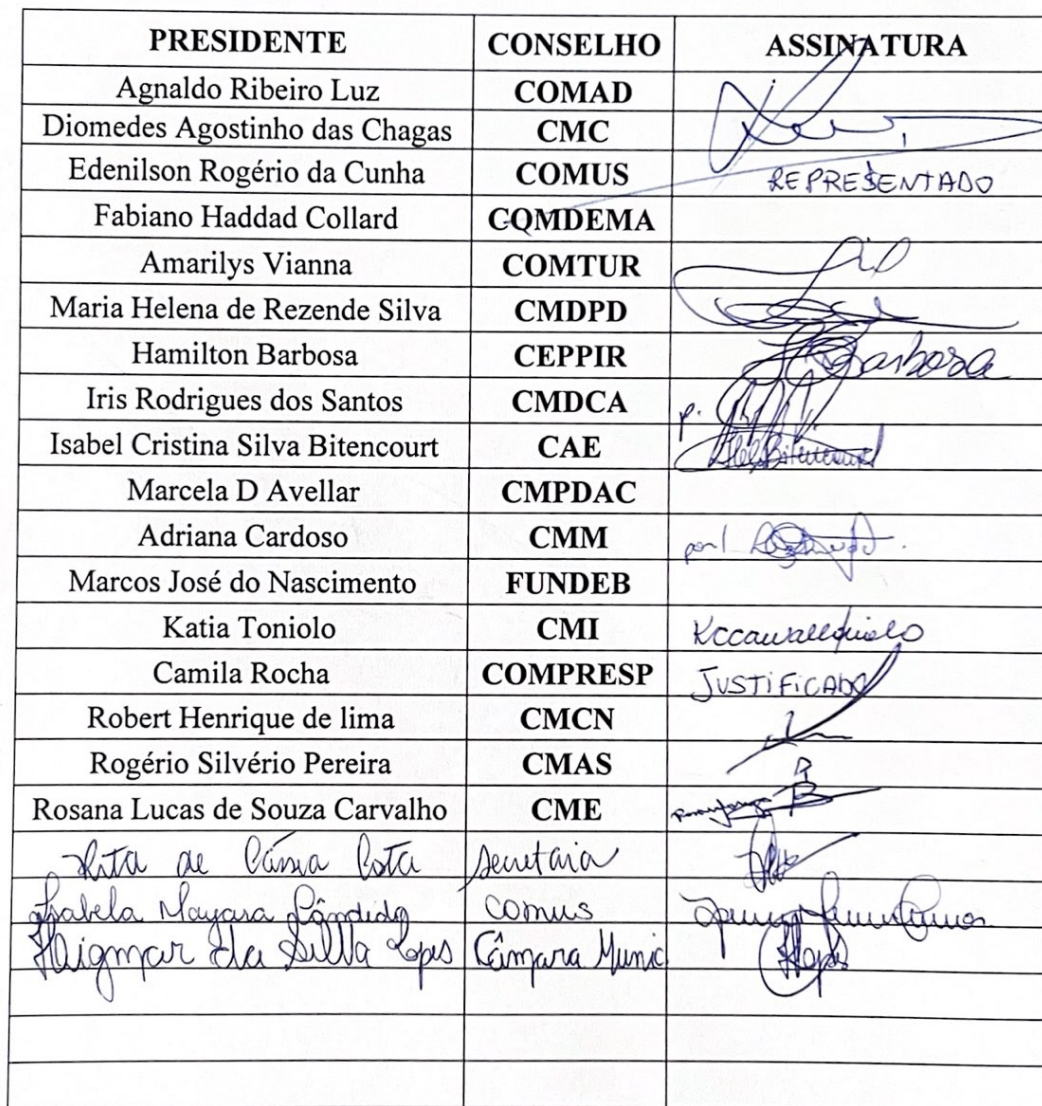 PRESIDENTE CONSELHO ASSINATURA
Agnaldo Ribeiro Luz COMAD
Diomedes Agostinho das Chagas CMC
Edenilson Rogério da Cunha COMUS REPRESENTADO
Fabiano Haddad Collard CQMDEMA
Amarilys Vianna COMTUR
Maria Helena de Rezende Silva CMDPD
Hamilton Barbosa CEPPIR Barbosa
Iris Rodrigues dos Santos CMDCA p.
Isabel Cristina Silva Bitencourt CAE Bitencourt
Marcela D Avellar CMPDAC
Adriana Cardoso CMM
Marcos José do Nascimento FUNDEB
Katia Toniolo CMI
Camila Rocha COMPRESP JUSTIFICADO
Robert Henrique de lima CMCN
Rogério Silvério Pereira CMAS
Rosana Lucas de Souza Carvalho CME
Rita de Cássia Costa secretaria
Isabela Mayara Cândido comus
da Silva Lopes Câmara Munic Lopes